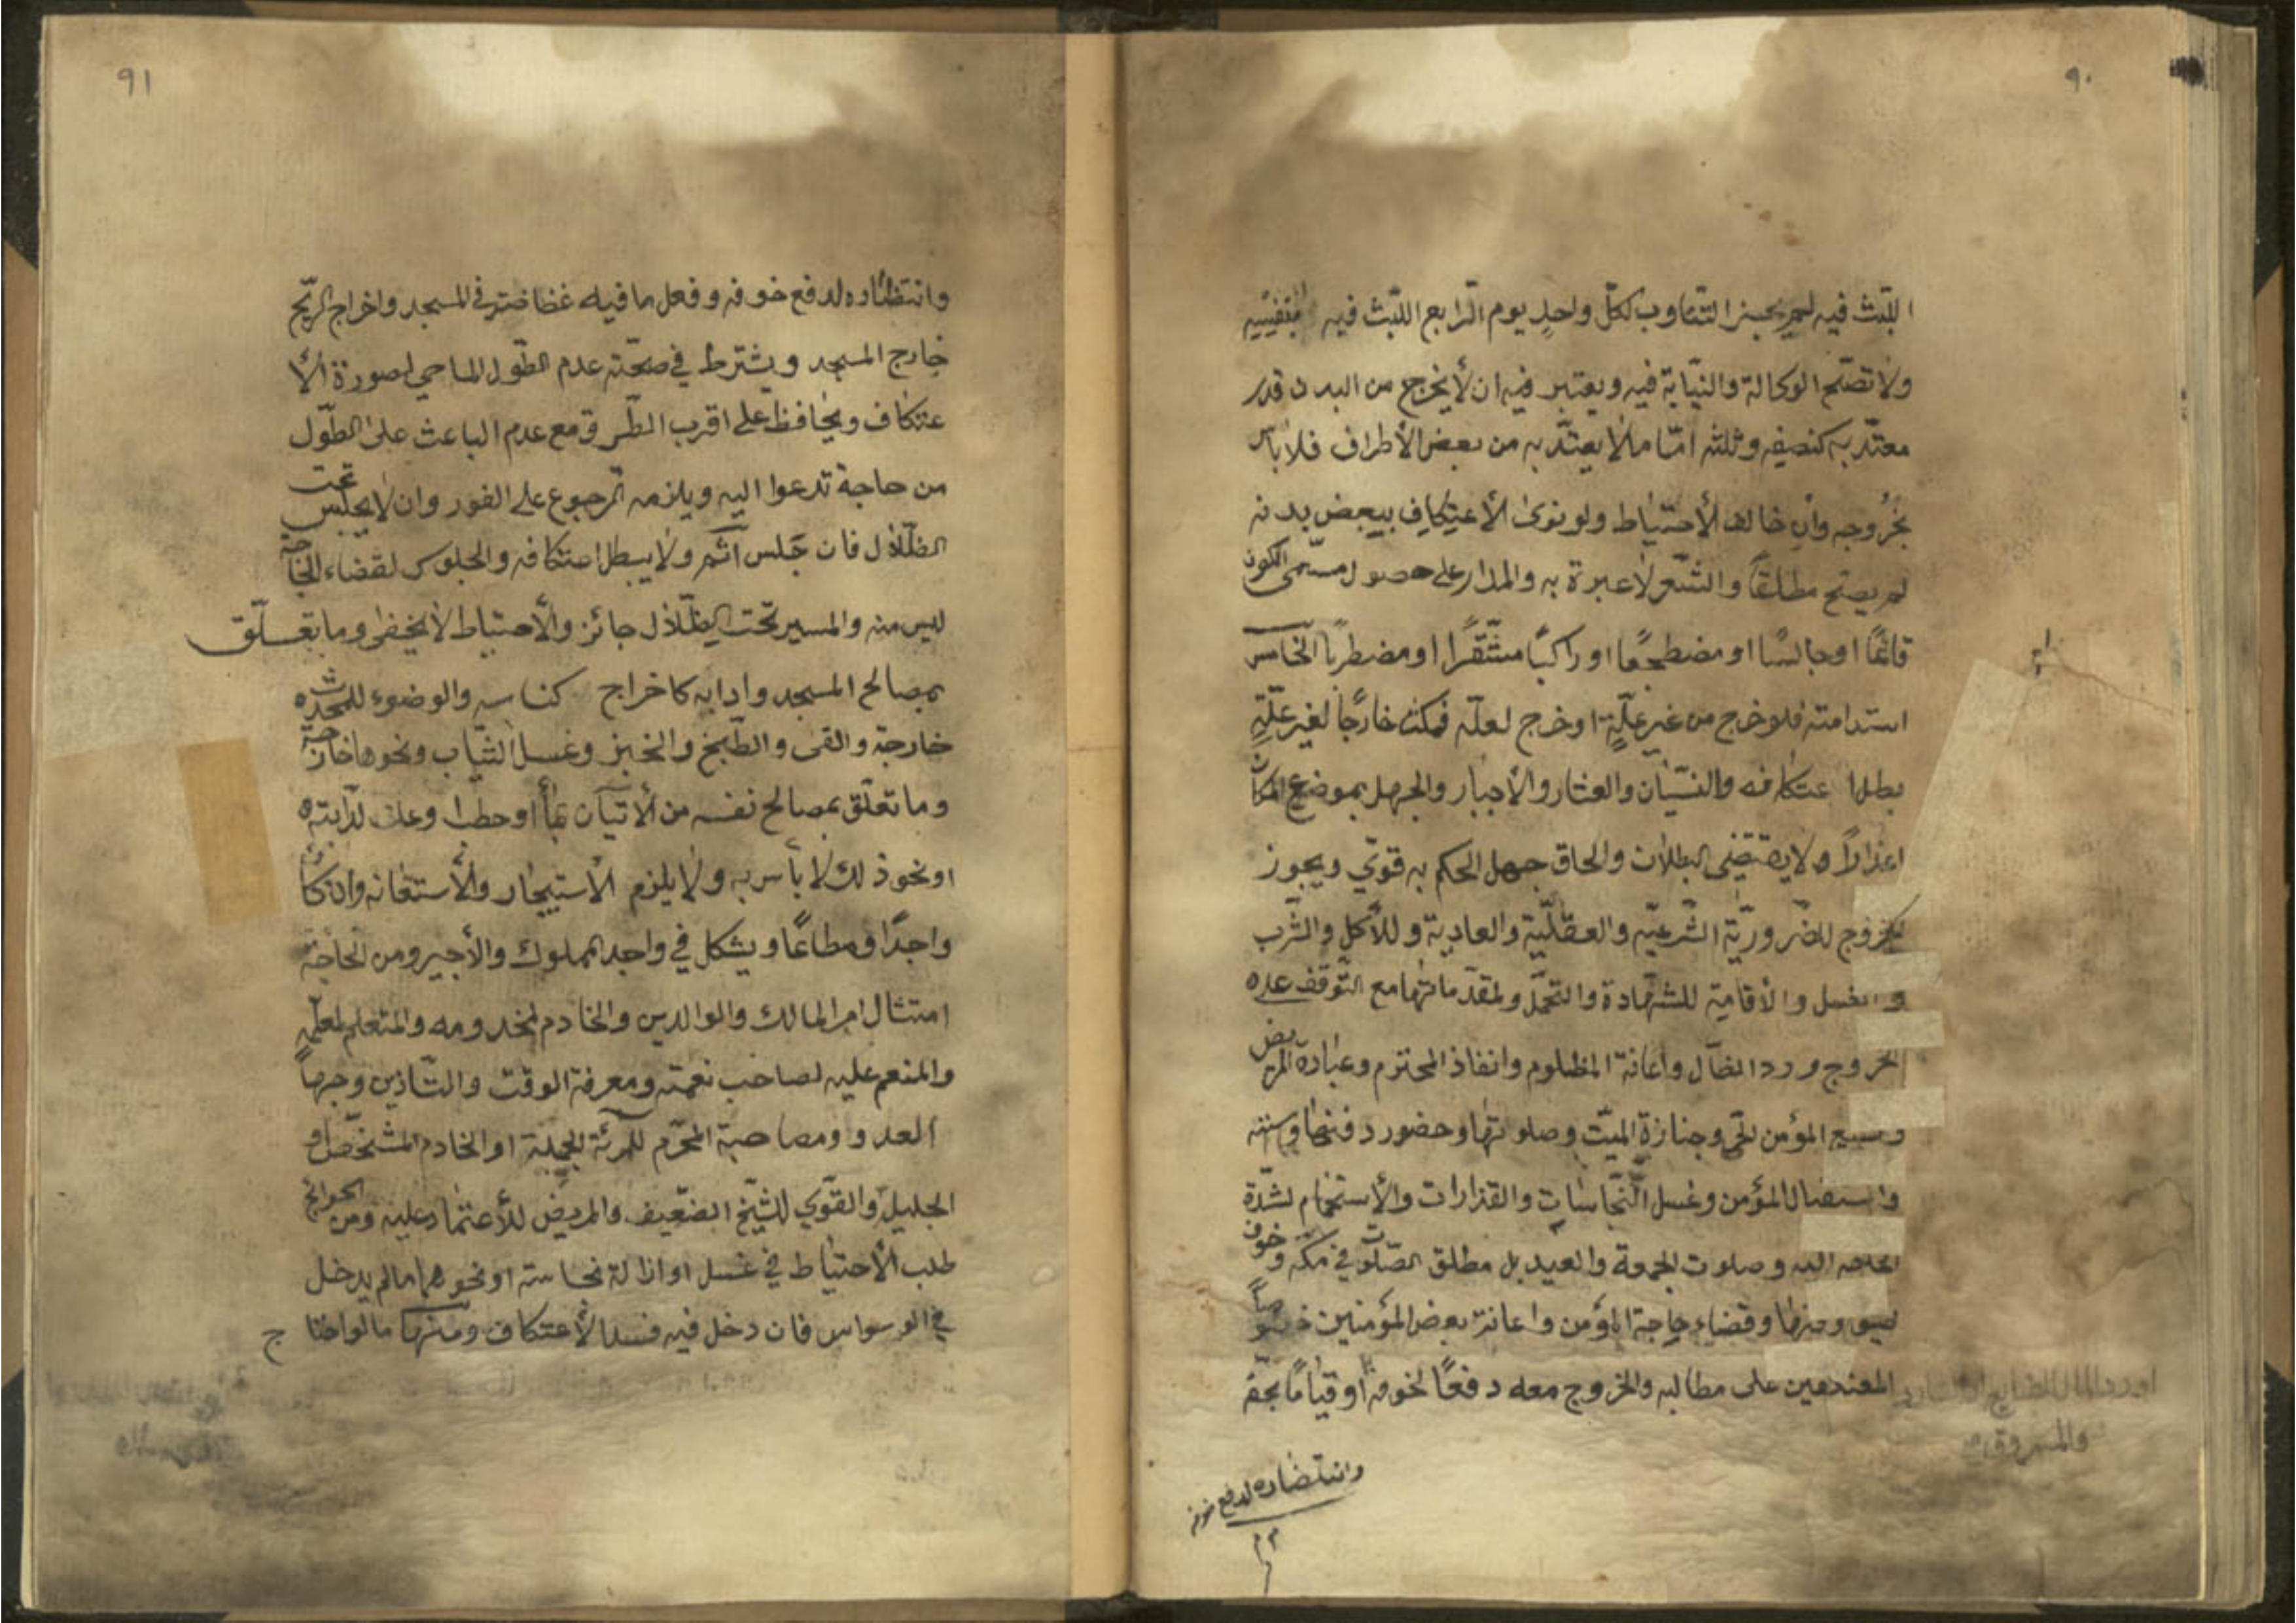 ٩٠
اللّبث فيه لم يجز التناوب لكلّ واحدٍ يوم الرّابع اللّبث فيه بنفسه
ولا تصحّ الوكالة والنّيابة فيه ويعتبر فيه ان لا يخرج من البدن قدر
معتدّ به كنصفه وثلثه امّا ما لا يعتدّ به من بعض الأطراف فلا بأس
بخُروجه وان خالف الأحتياط ولو نوى الأعتكاف ببعض بدنه
لم يصحّ مطلقاً والشّعر لا عبرة به والمدار على حصول مسمّى الكون
قائماً او جالسًا او مضطجعًا او راكبًا مستقّرا او مضطربًا الخامس
استدامته فلو خرج من غير علّةٍ او خرج لعلّه فمكث خارجًا لغير علّةٍ
بطل اعتكافه والنّسيان والعثار والأجبار والجهل بموضع المكان
اعذاراً ولا يقتضى البطلان والحاق جهل الحكم به قوّي ويجوز
الخروج للضّروريّة الشّرعيّه والعقليّة والعادية وللأكل والشّرب
والغسل والأقامة للشّهادة والتحمّل ولمقدّماتها مع التّوقف عله
الخروج وردا لضّآل واعانة المظلوم وانفاذ المحترم وعيادة المريض
و المؤمن الحى وجنازة الميّت وصلوتها وحضور دفنها و
و المؤمن وغسل النّجاسات والقذارات والأستحمام لشدّة
 اليه وصلوت الجمعة والعيد بل مطلق الصّلوت في مكّه وخوف
 وقضاء حاجة المؤمن واعانة بعض المؤمنين خصوصاً
 على مطالبه والخروج معه دفعًا لخوفه او قيامًا بحقّه
او ردا لمال الضايع او
والمسروق
وانتضاره لدفع خوفه
٩١
وانتظاره لدفع خوفه وفعل ما فيه غضاضة في المسجد واخراج الرّيح
خارج المسجد ويشترط في صحّته عدم الطّول الماحي لصورة الأ
عتكاف ويحافظ على اقرب الطّرق مع عدم الباعث على الطّول
من حاجة تدعوا اليه ويلزمه الرّجوع على الفور وان لا يجلس تحت
الظّلال فان جَلس اثم ولا يبطل اعتكافه والجلوس لقضاء الحاجة
ليس منه والمسير تحت الظّلال جائز والأحتياط لا يخفى وما يتعلّق
بمصالح المسجد وادابه كاخراج كناسه والوضوء للمحدث
خارجة والقى والطّبخ والخبز وغسل الثّياب ونحوها خارجة
وما تعلّق بمصالح نفسه من الأتيان بمأ او حطب وعلف لدابته
او نحو ذلك لا بأس به ولا يلزم الأستيجار والأستعانه وان كان
واجدًا ومطاعًا ويشكل في واجد المملوك والأجير ومن الحاجة
امتثال امر المالك والوالدين والخادم لمخدومه والمتعلم لمعلّمه
والمنعم عليه لصاحب نعمته ومعرفة الوقت والتّاذين و
العدو ومصاحبة المحرم للمرئة الجليلة او الخادم المشخّص او
الجليل والقوّي للشّيخ الضّعيف والمريض للأعتماد عليه ومن الحوائج
طلب الأحتياط في غسل او ازالة نجاسة او نحوهما ما لم يدخل
في الوسواس فان دخل فيه فسد الأعتكاف ومنها ما لو احتا
ج